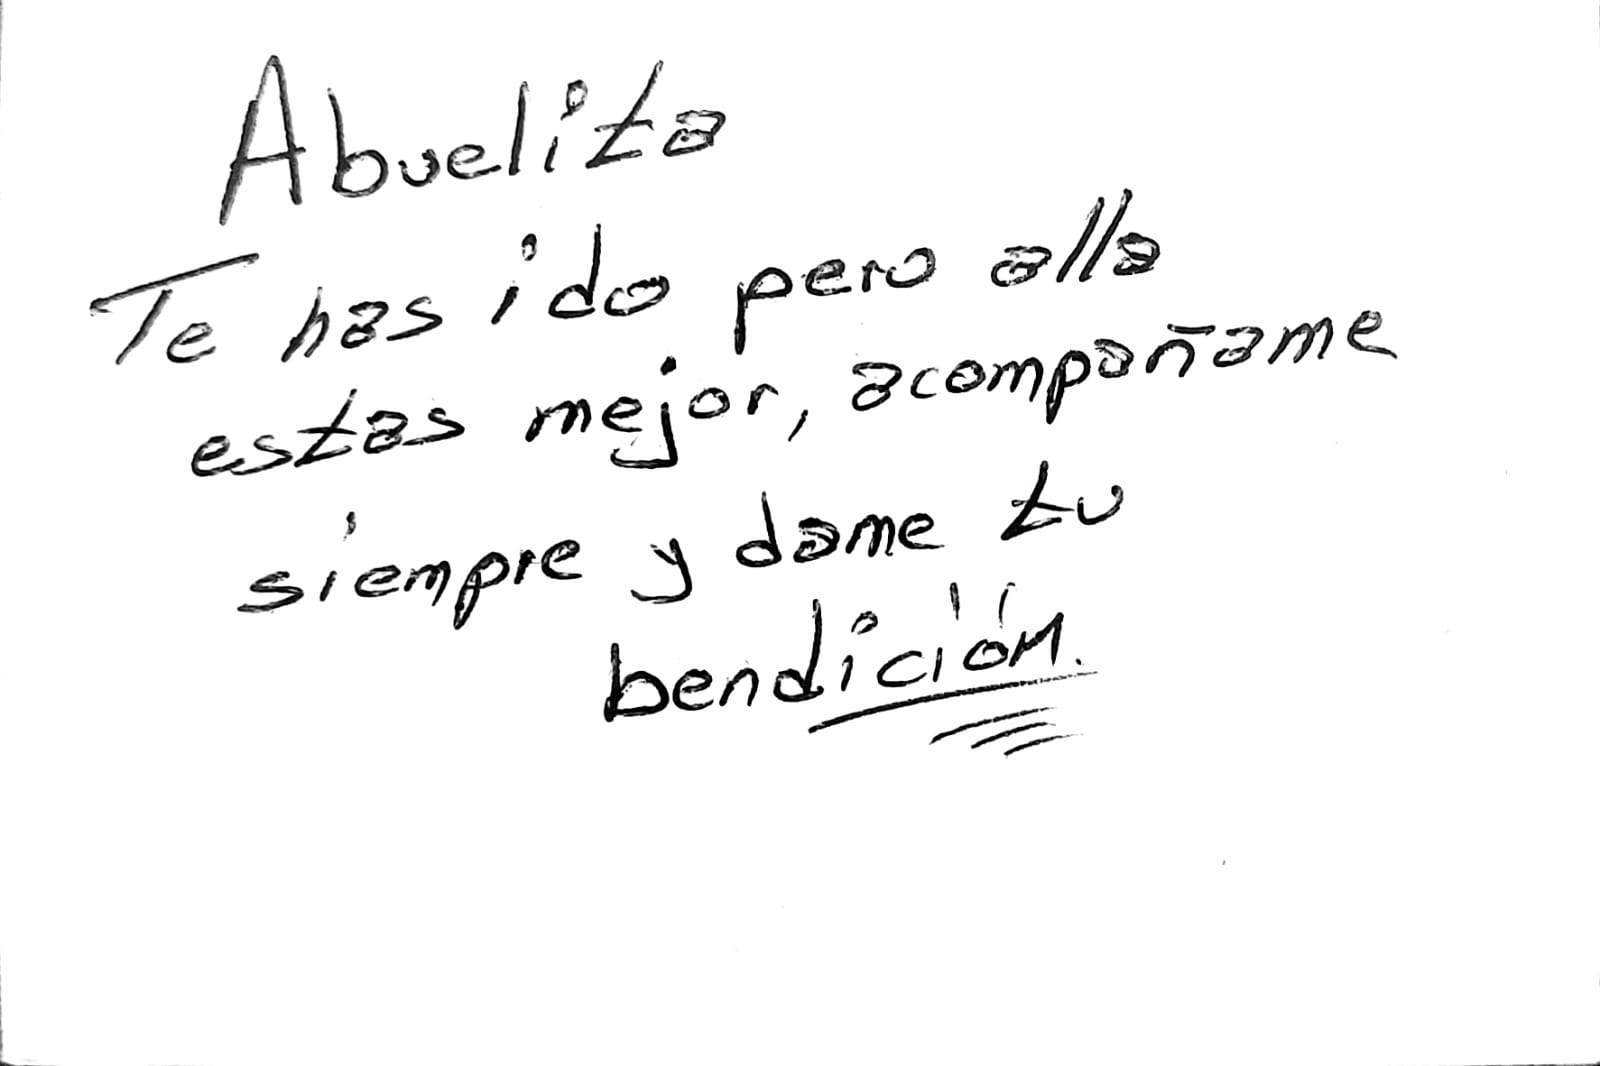 Abuelita
Te has ido pero alla
estas mejor, acompañame
siempre y dame tu
bendición.